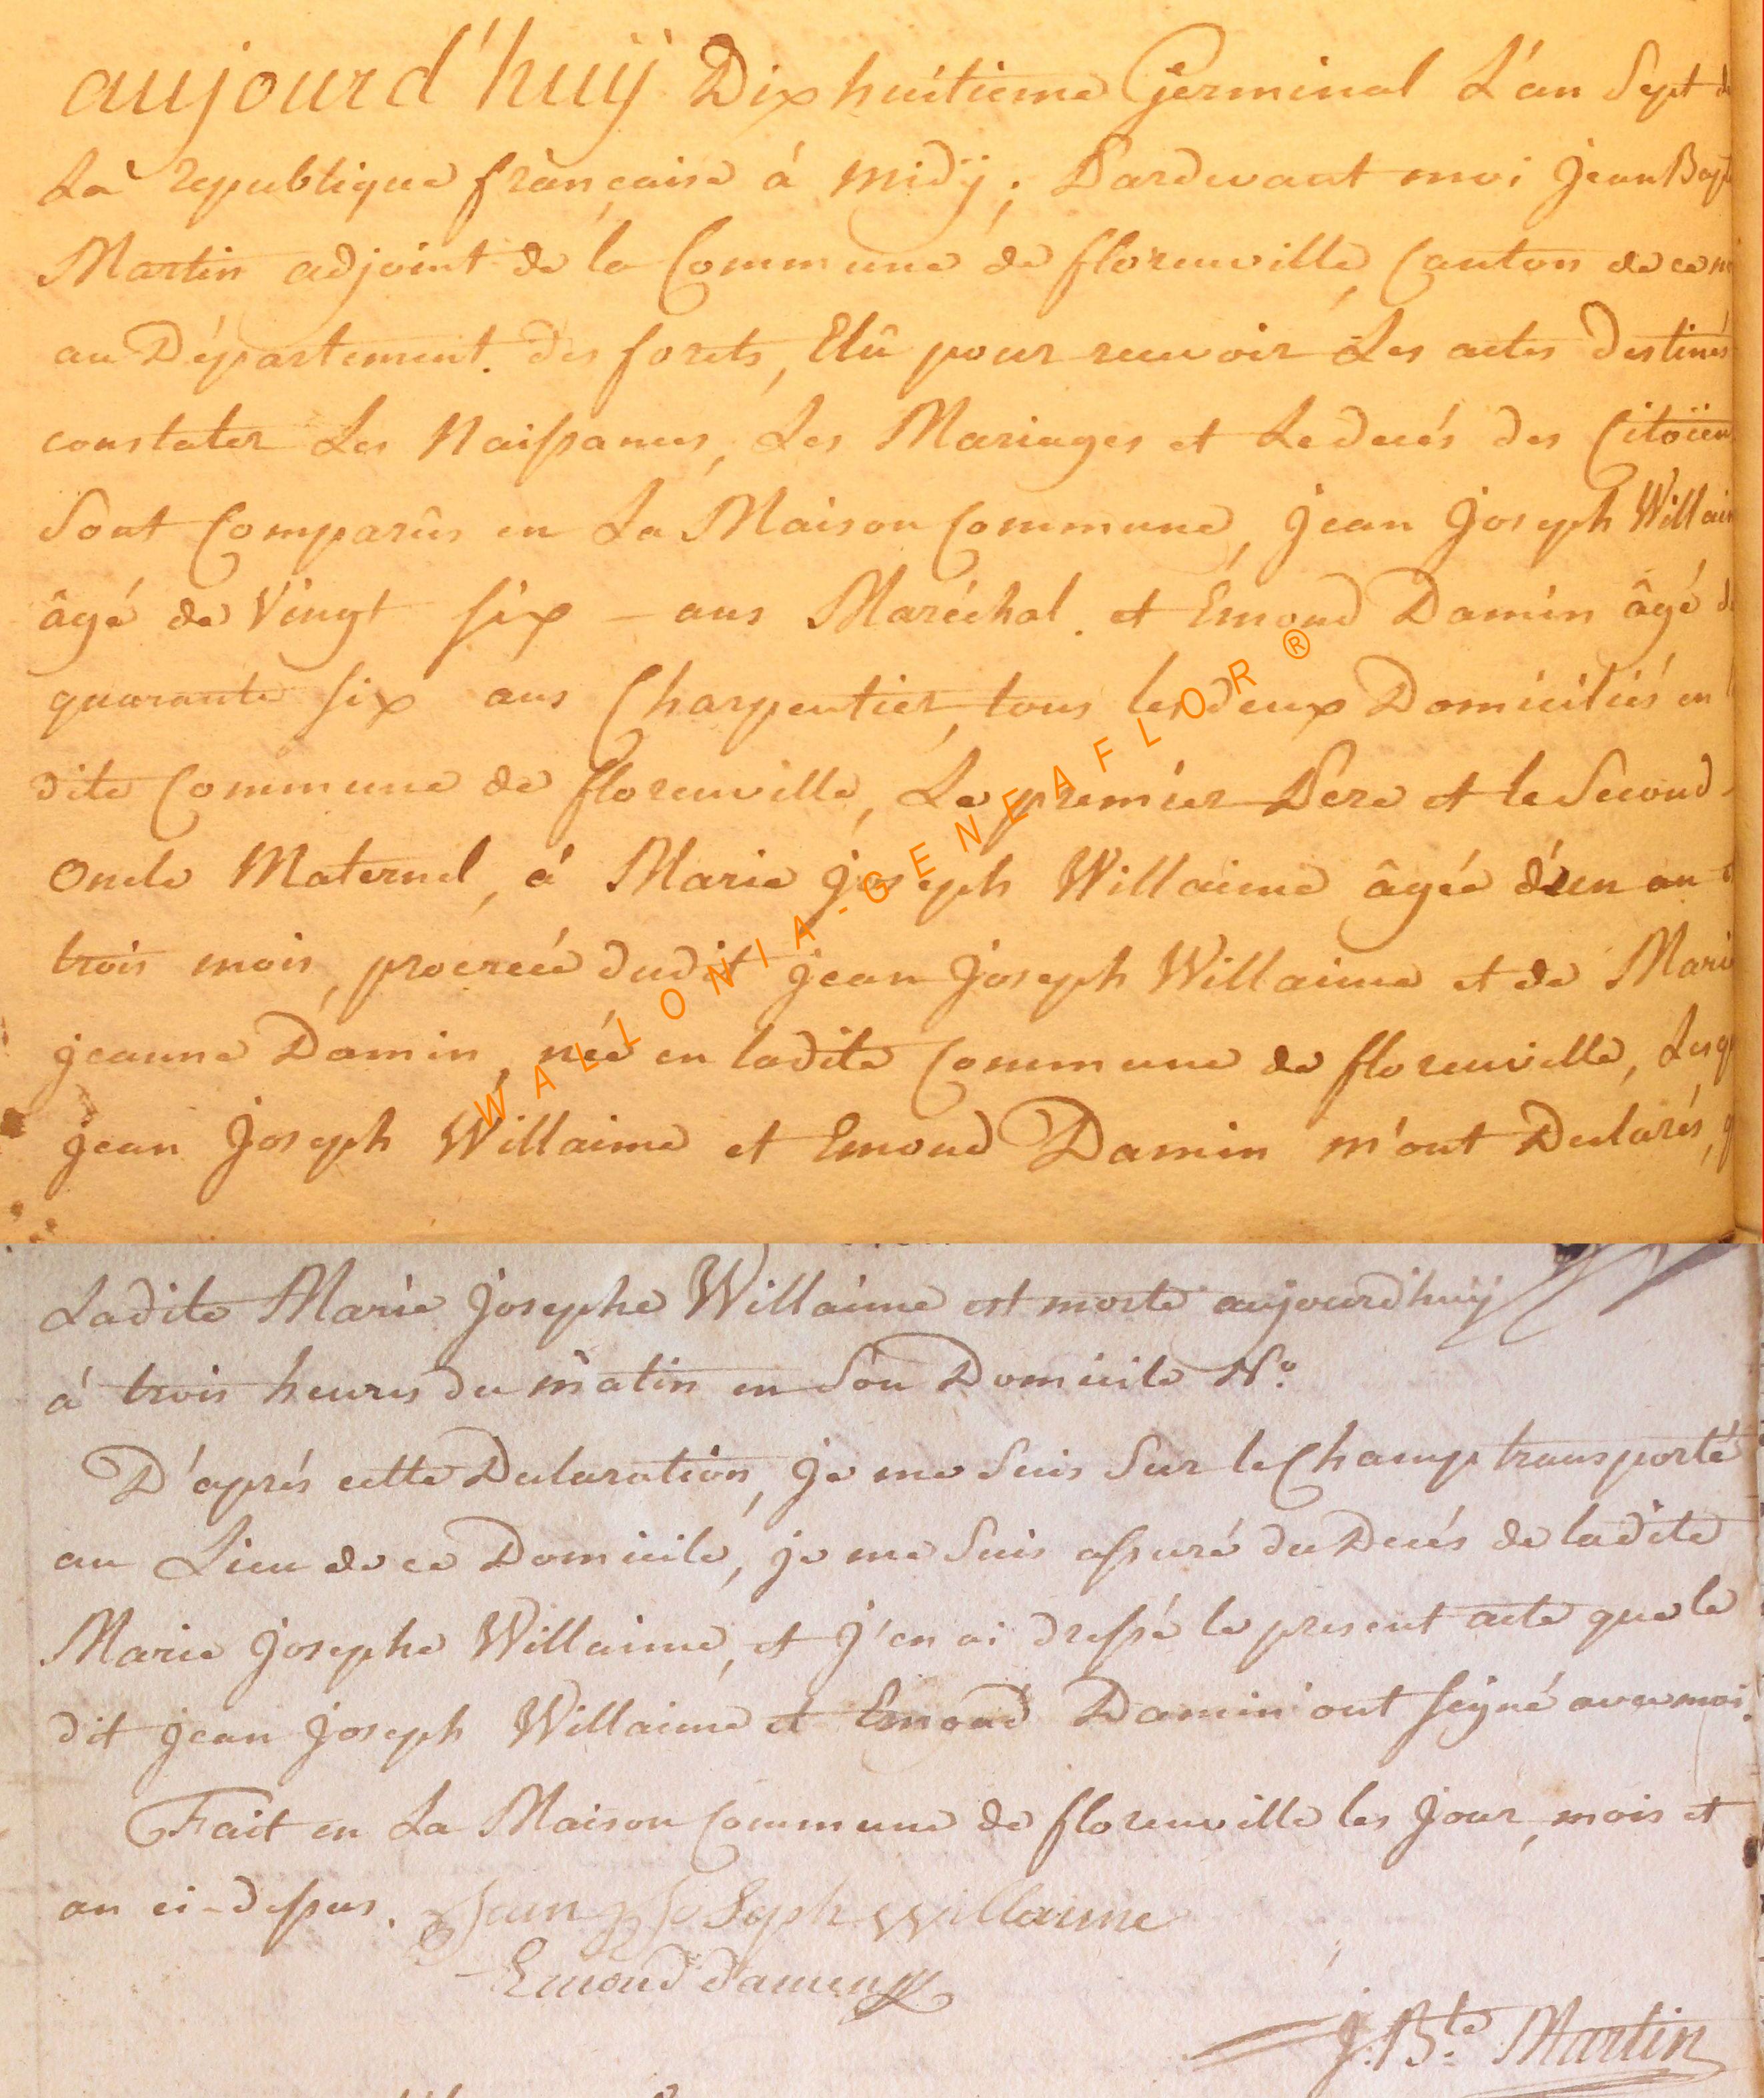 aujourd'huÿ Dixhuitieme Germinal L'an Sept de
La republique française à midÿ; Pardevant moi Jean Bapt
Martin adjoint de la Commune de florenville, Canton de ce
au Département. des forets, Elû pour recevoir Les actes destinés
constater Les Naissances, Les Mariages et Le decés des Citoïen
Sont Comparûs en La Maison Commune, Jean Joseph Willaim
âgé de Vingt six – ans Maréchal. et Emond Damin âgé de
quarante six ans Charpentier, tous les deux Domiciliés en
dite Commune de florenville, Le premier Pere et le Second
Oncle Maternel, à Marie Joseph Willaime âgée d'un an
trois mois, procreée dudit Jean Joseph Willaime et de Marie
jeanne Damin, née en ladite Commune de florenville, Lesq
Jean Joseph Willaime et Emond Damin m'ont Declarés, q
WALLONIA-GENEAFLOR ®
Ladite Marie Josephe Willaime est morte aujourdhuÿ
à trois heures du matin en Son Domicile N.o
D'aprés cette Declaration, je me Suis Sur le Champ transporté
au Lieu de ce Domicile, je me Suis assuré du Decés de ladite
Marie Josephe Willaime, et j'en ai dressé le present acte que le
dit Jean Joseph Willaime et Emond Damin ont signé avec moi.
Fait en La Maison Commune de florenville les Jour, mois et
an ci-dessus. Jean Joseph Willaime
Emond damin
J. Bte. Martin